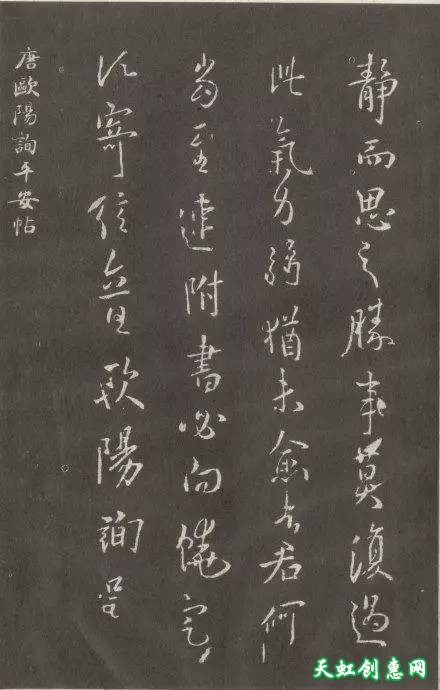 靜而思之勝事莫復過
此氣力弱猶未愈吉君何
當至速附書必向饒定
寄信歐陽詢呈
唐歐陽詢平安帖
天虹创惠网